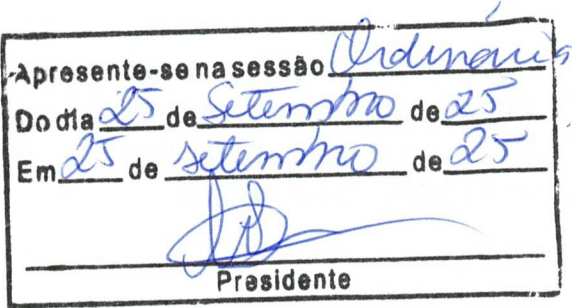 Apresente-se na sessão Ordinária
Do dia 25 de Setembro de 25
Em 25 de setembro de 25
Presidente